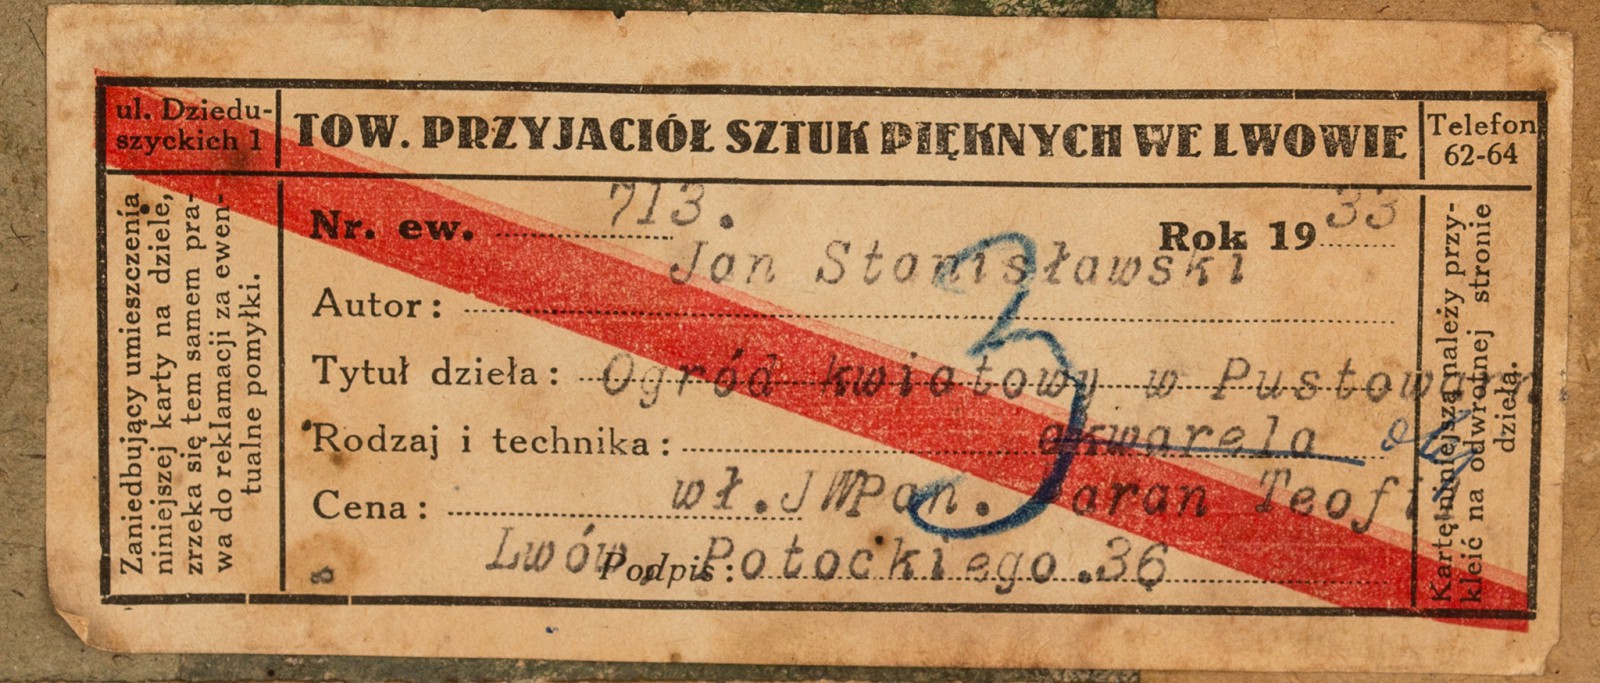 ul. Dziedu-
szyckich 1
TOW. PRZYJACIÓŁ SZTUK PIĘKNYCH WE LWOWIE
Telefon
62-64
Zaniedbujący umieszczenia
niniejszej karty na dziele,
zrzeka się tem samem pra-
wa do reklamacji za ewen-
tualne pomyłki.
Nr. ew. 713. Rok 1933
Autor: Jan Stanisławski
Tytuł dzieła: Ogród kwiatowy w Pustowarni.
Rodzaj i technika: akwarela olej
Cena: wł. JWPan. Baran Teofil
Podpis: Lwów, Potockiego .36
3
Kartę niniejszą należy przy-
kleić na odwrotnej stronie
dzieła.